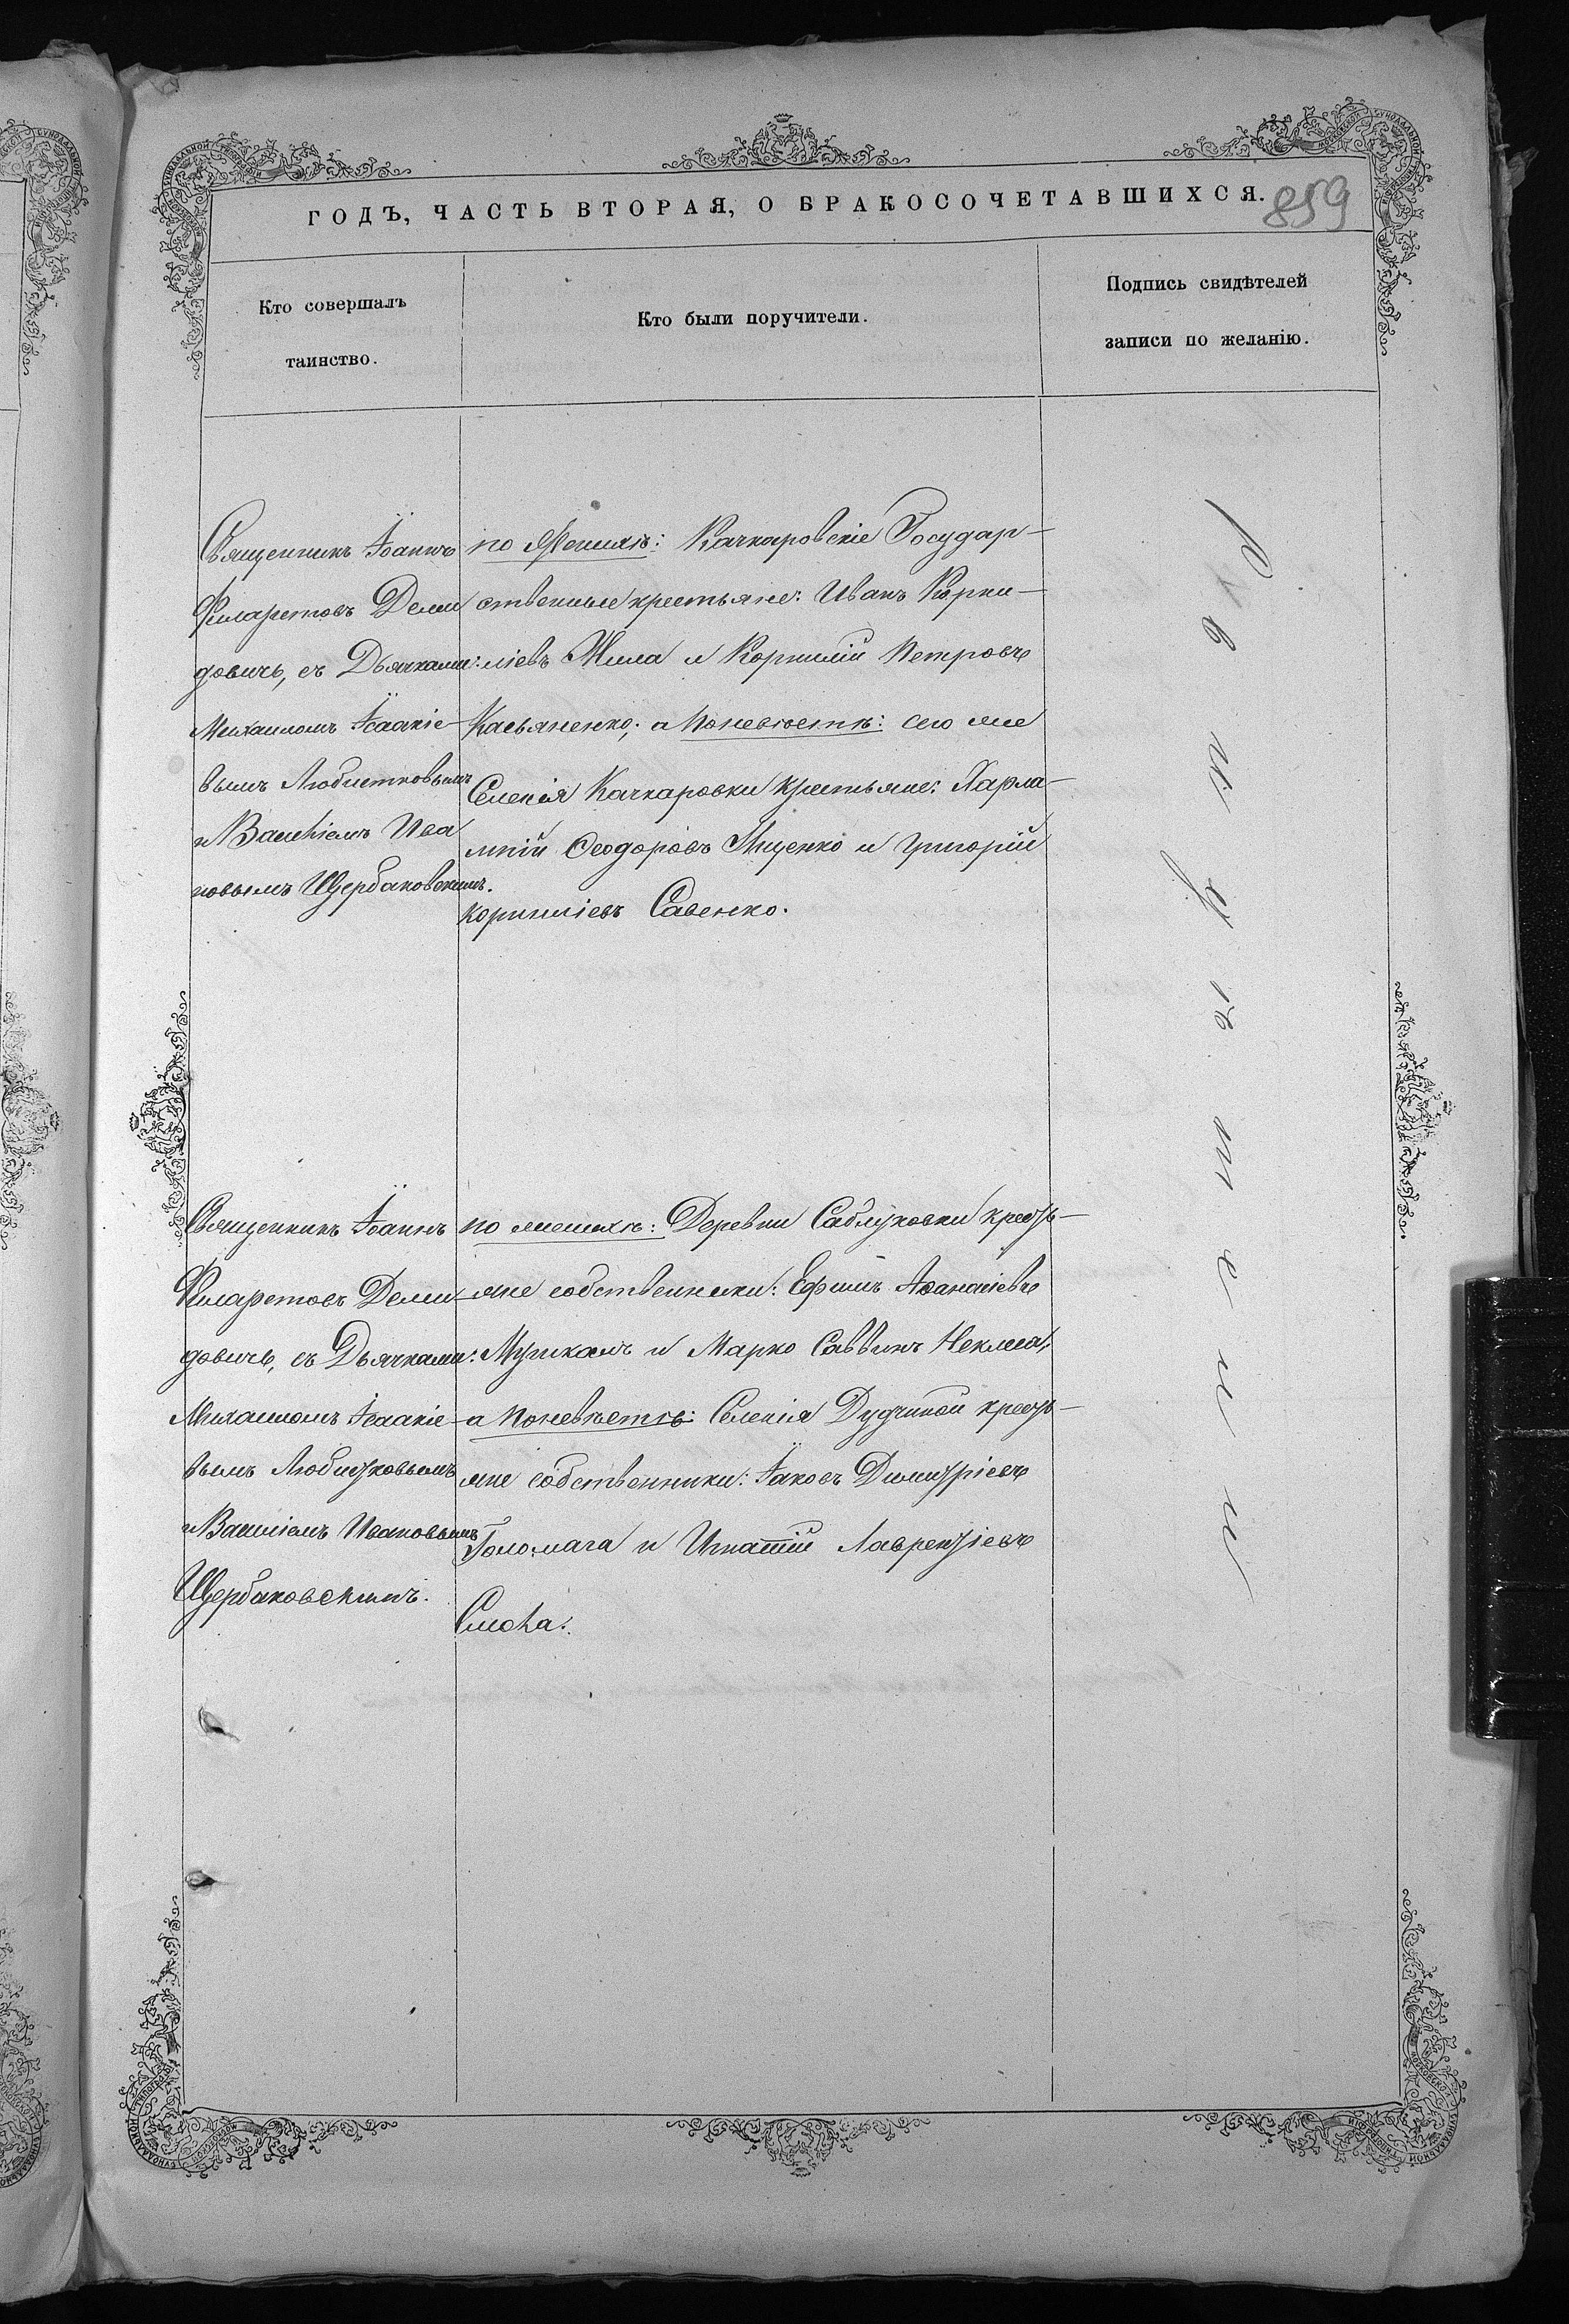 ГОДЪ, ЧАСТЬ ВТОРАЯ, О БРАКОСОЧЕТАВШИХСЯ.
859
Кто совершалъ
таинство.
Кто были поручители.
Подпись свидѣтелей
записи по желанію.
Священникъ Іоаннъ
Филаретовъ Деми
довичь, съ Дьячками:
Михаиломъ Ісаакіе-
вымъ Любистковымъ
и Василіемъ Ива
новымъ Щербаковскимъ.
по Женихѣ: Качкаровскіе Государ-
ственные крестьяне: Иванъ Корни-
ліевъ Жила и Корнилій Петровъ
Касьяненко; а Поневѣстѣ: сего же
Селенія Качкаровки крестьяне: Харла-
мпій Ѳеодоровъ Яценко и Григорій
Корниліевъ Савенко.
Священникъ Іоаннъ
Филаретовъ Деми-
довичь, съ Дьячками:
Михаиломъ Ісаакіе-
вымъ Любистковымъ
и Василіемъ Ивановымъ
Щербаковскимъ.
по женихѣ: Деревни Саблуковки кресть-
яне собственники: Ефимъ Аѳанасіевъ
Мушкалъ и Марко Саввинъ Неклеса,
а Поневѣстѣ: Селенія Дудчиной кресть-
яне собственники: Іаковъ Димитріевъ
Голомага и Игнатій Лаврентіевъ
Смоха.